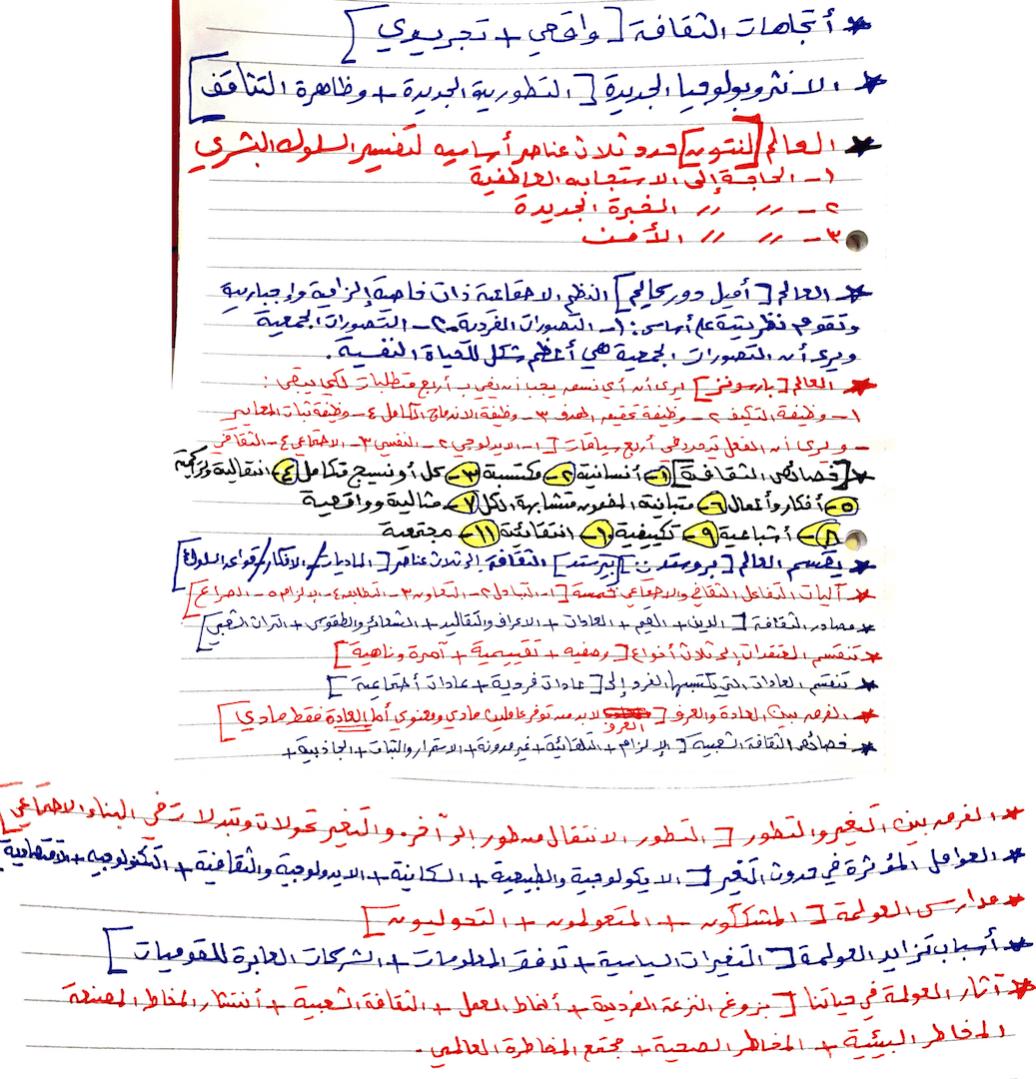 * أتجاهات الثقافة [واقعي + تجريدي]
* الانثروبولوجيا الجديدة [التطورية الجديدة + وظاهرة التثاقف]
* العالم [لنتون] حدد ثلاث عناصر أساسيه لتفسير السلوك البشري
١- الحاجة إلى الاستجابه العاطفية
٢- // // الخبرة الجديدة
٣- // // الأمن
* العالم [أميل دوركايم] النظم الاجتماعية ذات خاصية إلزامية وإجبارية
وتقوم نظريتية على أساس: ١- التصورات الفردية ٢- التصورات الجمعية
ويرى أن التصورات الجمعية هي أعظم شكل للحياة النفسية.
* العالم [بارسونز] يرى أن أي نسق يجب أن يفي بـ أربع متطلبات لكي يبقى:
١- وظيفة التكيف ٢- وظيفة تحقيق الهدف ٣- وظيفة الاندماج التكامل ٤- وظيفة ثبات المعايير
- ويرى أن الفعل يتحدد في أربع سياقات [١- الايدلوجي ٢- النفسي ٣- الاجتماعي ٤- الثقافي
* [خصائص الثقافة] ١- أنسانية ٢- مكتسبة ٣- كل أو نسيج متكامل ٤- انتقالية وتراكمية
٥- أفكار وأعمال ٦- متباينة المضمون متشابهة الكل ٧- مثالية وواقعية
٨- أشباعية ٩- تكييفية ١٠- انتقائية ١١- مجتمعية
* يقسم العالم [بروستد] [بيرستد] الثقافة إلى ثلاث عناصر [الماديات/الافكار/قواعد السلوك]
* آليات التفاعل الثقافي والاجتماعي خمسة [١- التبادل ٢- التعاون ٣- التطابق ٤- الإلزام ٥- الصراع]
* مصادر الثقافة [الدين + القيم + العادات + الاعراف والتقاليد + الشعائر والطقوس + التراث الشعبي]
* تنقسم المعتقدات إلى ثلاث أنواع [وصفيه + تقييمية + آمرة وناهية]
* تنقسم العادات التي يكتسبها الفرد إلى [عادات فردية + عادات أجتماعية]
* الفرق بين العادة والعرف [العرف لابد من توفر عاملين مادي ومعنوي أما العادة فقط مادي]
* خصائص الثقافة الشعبية [الإلزام + التلقائية + غير مدونة + الاستمرار والثبات + الجاذبية +
* الفرق بين التغير والتطور [التطور الانتقال من طور إلى آخر. والتغير تحولات وتبدلات في البناء الاجتماعي]
* العوامل المؤثرة في حدوث التغير [الايكولوجية والطبيعية + السكانية + الايدولوجية والثقافية + التكنولوجيه + الاقتصادية
* مدارس العولمة [المشككون + المتعولمون + التحوليون]
* أسباب تزايد العولمة [التغيرات السياسية + تدفق المعلومات + الشركات العابرة للقوميات]
* آثار العولمة في حياتنا [بزوغ النزعة الفردية + أنماط العمل + الثقافة الشعبية + أنتشار المخاطر المصنعة
المخاطر البيئية + المخاطر الصحية + مجتمع المخاطرة العالمي.